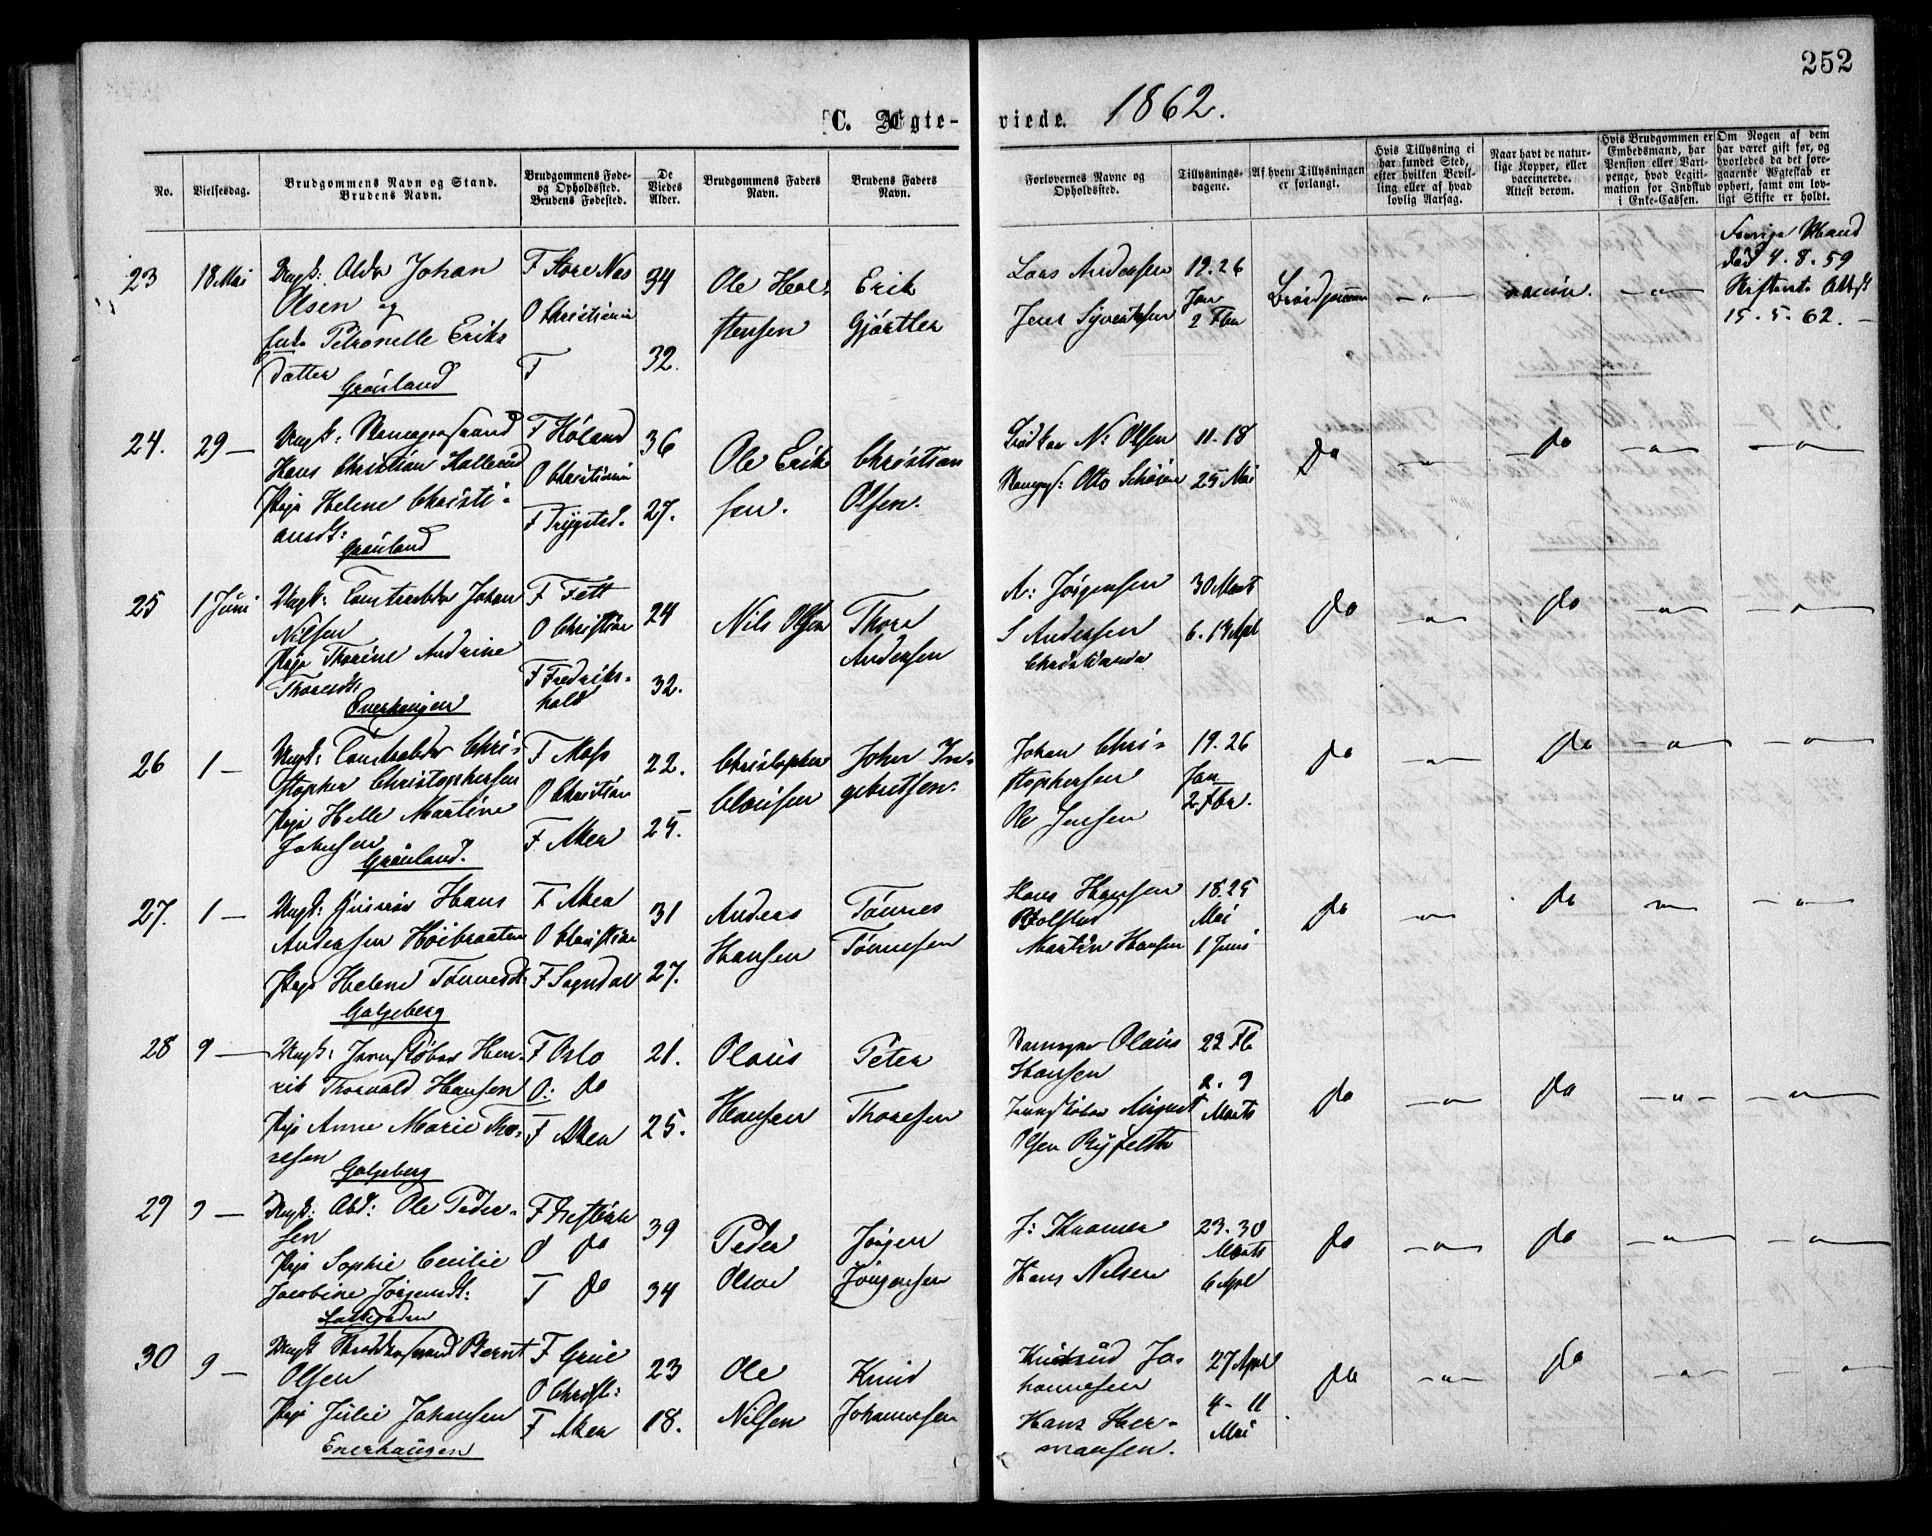 252
C. Ægte-
viede. 1862.
No.
Vielsesdag.
Brudgommens Navn og Stand.
Brudens Navn.
Brudgommens Føde-
og Opholdssted.
Brudens Fødested.
De
Viedes
Alder.
Brudgommens Faders
Navn.
Brudens Faders
Navn.
Forlovernes Navne og
Opholdssted.
Tillysnings-
dagene.
Af hvem Tillysningen
er forlangt.
Hvis Tillysning ei
har fundet Sted,
efter hvilken Bevil-
ling eller af hvad
lovlig Aarsag.
Naar havt de natur-
lige Kopper, eller
vaccinerede.
Attest derom.
Hvis Brudgommen er
Embedsmand, har
Pension eller Vart-
penge, hvad Legiti-
mation for Indskud
i Enke-Cassen.
Om Nogen af dem
har været gift før, og
hvorledes da det fore-
gaaende Ægteskab er
ophørt, samt om lov-
ligt Skifte er holdt.
23
18 Mai
Ungk: Johan
Olsen og
Petronelle Eriks
datter
Grønland
F Store Næs
O Christiania
F
34
32.
Ole Hal-
stensen
Erik
Gjørtler
Lars Andersen
Jens Syvertsen
19. 26
Jan
2 Fbr
Brudgommen
vaccin.
Mand
død 4. 8. 59
15. 5. 62.
24.
29 —
Ungk:
Hans Christian Kallerud
Pige Helene Christi-
ansd:
Grønland
F Høland
O Christiania
F Trygstad.
36
27.
Ole Erik
sen.
Christian
Olsen.
N: Olsen
Otto
11. 18
25 Mai
Do
Do
25
1 Juni
Ungk: Johan
Nilsen
Pige Thorine Andrine
Thoresd:
Enerhaugen
F Fett
O Christiania
F Fredriks-
hald
24
32.
Nils Olsen
Thore
Andersen
A: Jørgensen
S Andersen
Christiania
30 Marts
6. 14 Apl
Do
Do
26
1 —
Ungk: Chri-
stopher Christophersen
Pige Helle Martine
Johnsen
Grønland.
F Moss
O Christiania
F Aker
22.
25.
Christopher
Clausen
John In-
gebretsen.
Johan Chri-
stophersen
Ole Jensen
19. 26
Jan
2 Fbr.
Do
Do
27.
1 —
Ungk: Hans
Andersen Høibraaten
Pige Helene Tønnesd:
Galgeberg
F Aker
O Christiania
F Sogndal
31
27.
Anders
Hansen
Tønnes
Tønnesen
Hans Hansen
Martin Hansen
18. 25
Mai
1 Juni
Do
Do
28
9 —
Ungk: Jernstøber Hen-
rik Thorvald Hansen
Pige Anne Marie Tho-
resen
Galgeberg
F Oslo
O: Do
F Aker
21.
25.
Olaus
Hansen
Peter
Thoresen
Olaus
Hansen
Jernstøber August
Olsen
23 Fb
2. 9
Marts
Do
Do
29
9 —
Ungk: Abd: Ole Peder-
sen
Pige Sophie Cecilie
Jacobine Jørgensd:
O Do
F Do
39
34
Peder
Olsen
Jørgen
Jørgensen
J: Kramer
Hans Nilsen
23. 30
Marts
6 Apl
Do
Do
30
9 —
Ungk Bernt
Olsen
Pige Julie Johansen
Enerhaugen
F Grue
O Christ:
F Aker
23
18.
Ole
Nilsen
Knud
Johannesen
Knud Jo-
hannesen
Hans Her-
mansen.
27 Apl
4 - 11
Mai
Do
Do